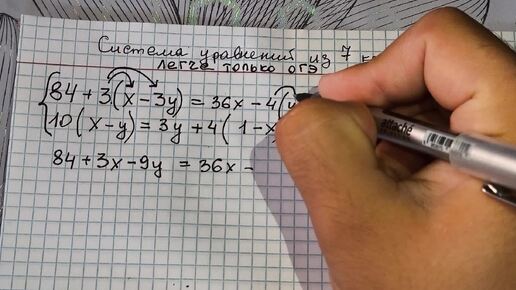 Система уравнений из 7
легче только огэ
84 + 3(x - 3y) = 36x - 4(
10(x - y) = 3y + 4(1 - x
84 + 3x - 9y = 36x -
attaché